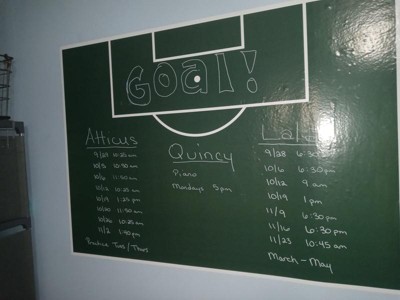 GOAL!
Atticus
10/5 10:50 am
10/19 1:25 pm
10/20 11:50 am
10/26 10:25 am
11/2 1:40 pm
Practice Tues/Thurs
Quincy
Piano
Mondays 5pm
9/28 6:30
10/6 6:30pm
10/12 9am
10/19 1pm
11/9 6:30pm
11/16 6:30 pm
11/23 10:45 am
March - May